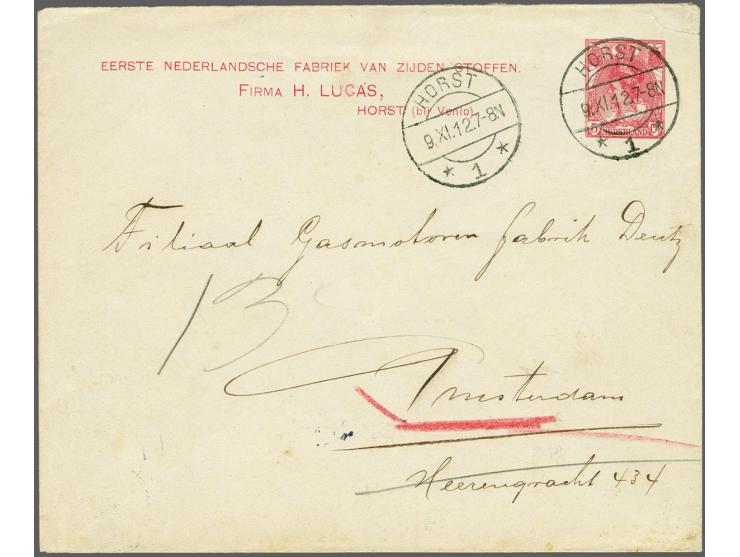 EERSTE NEDERLANDSCHE FABRIEK VAN ZIJDEN STOFFEN.
FIRMA H. LUCAS,
HORST (bij Venlo)
HORST
9.XI.12.7-8N
1
HORST
9.XI.12.7-8N
1
5 NEDERLAND
Filiaal Gasmotoren fabrik Deutz
13
Amsterdam
Heerengracht 434